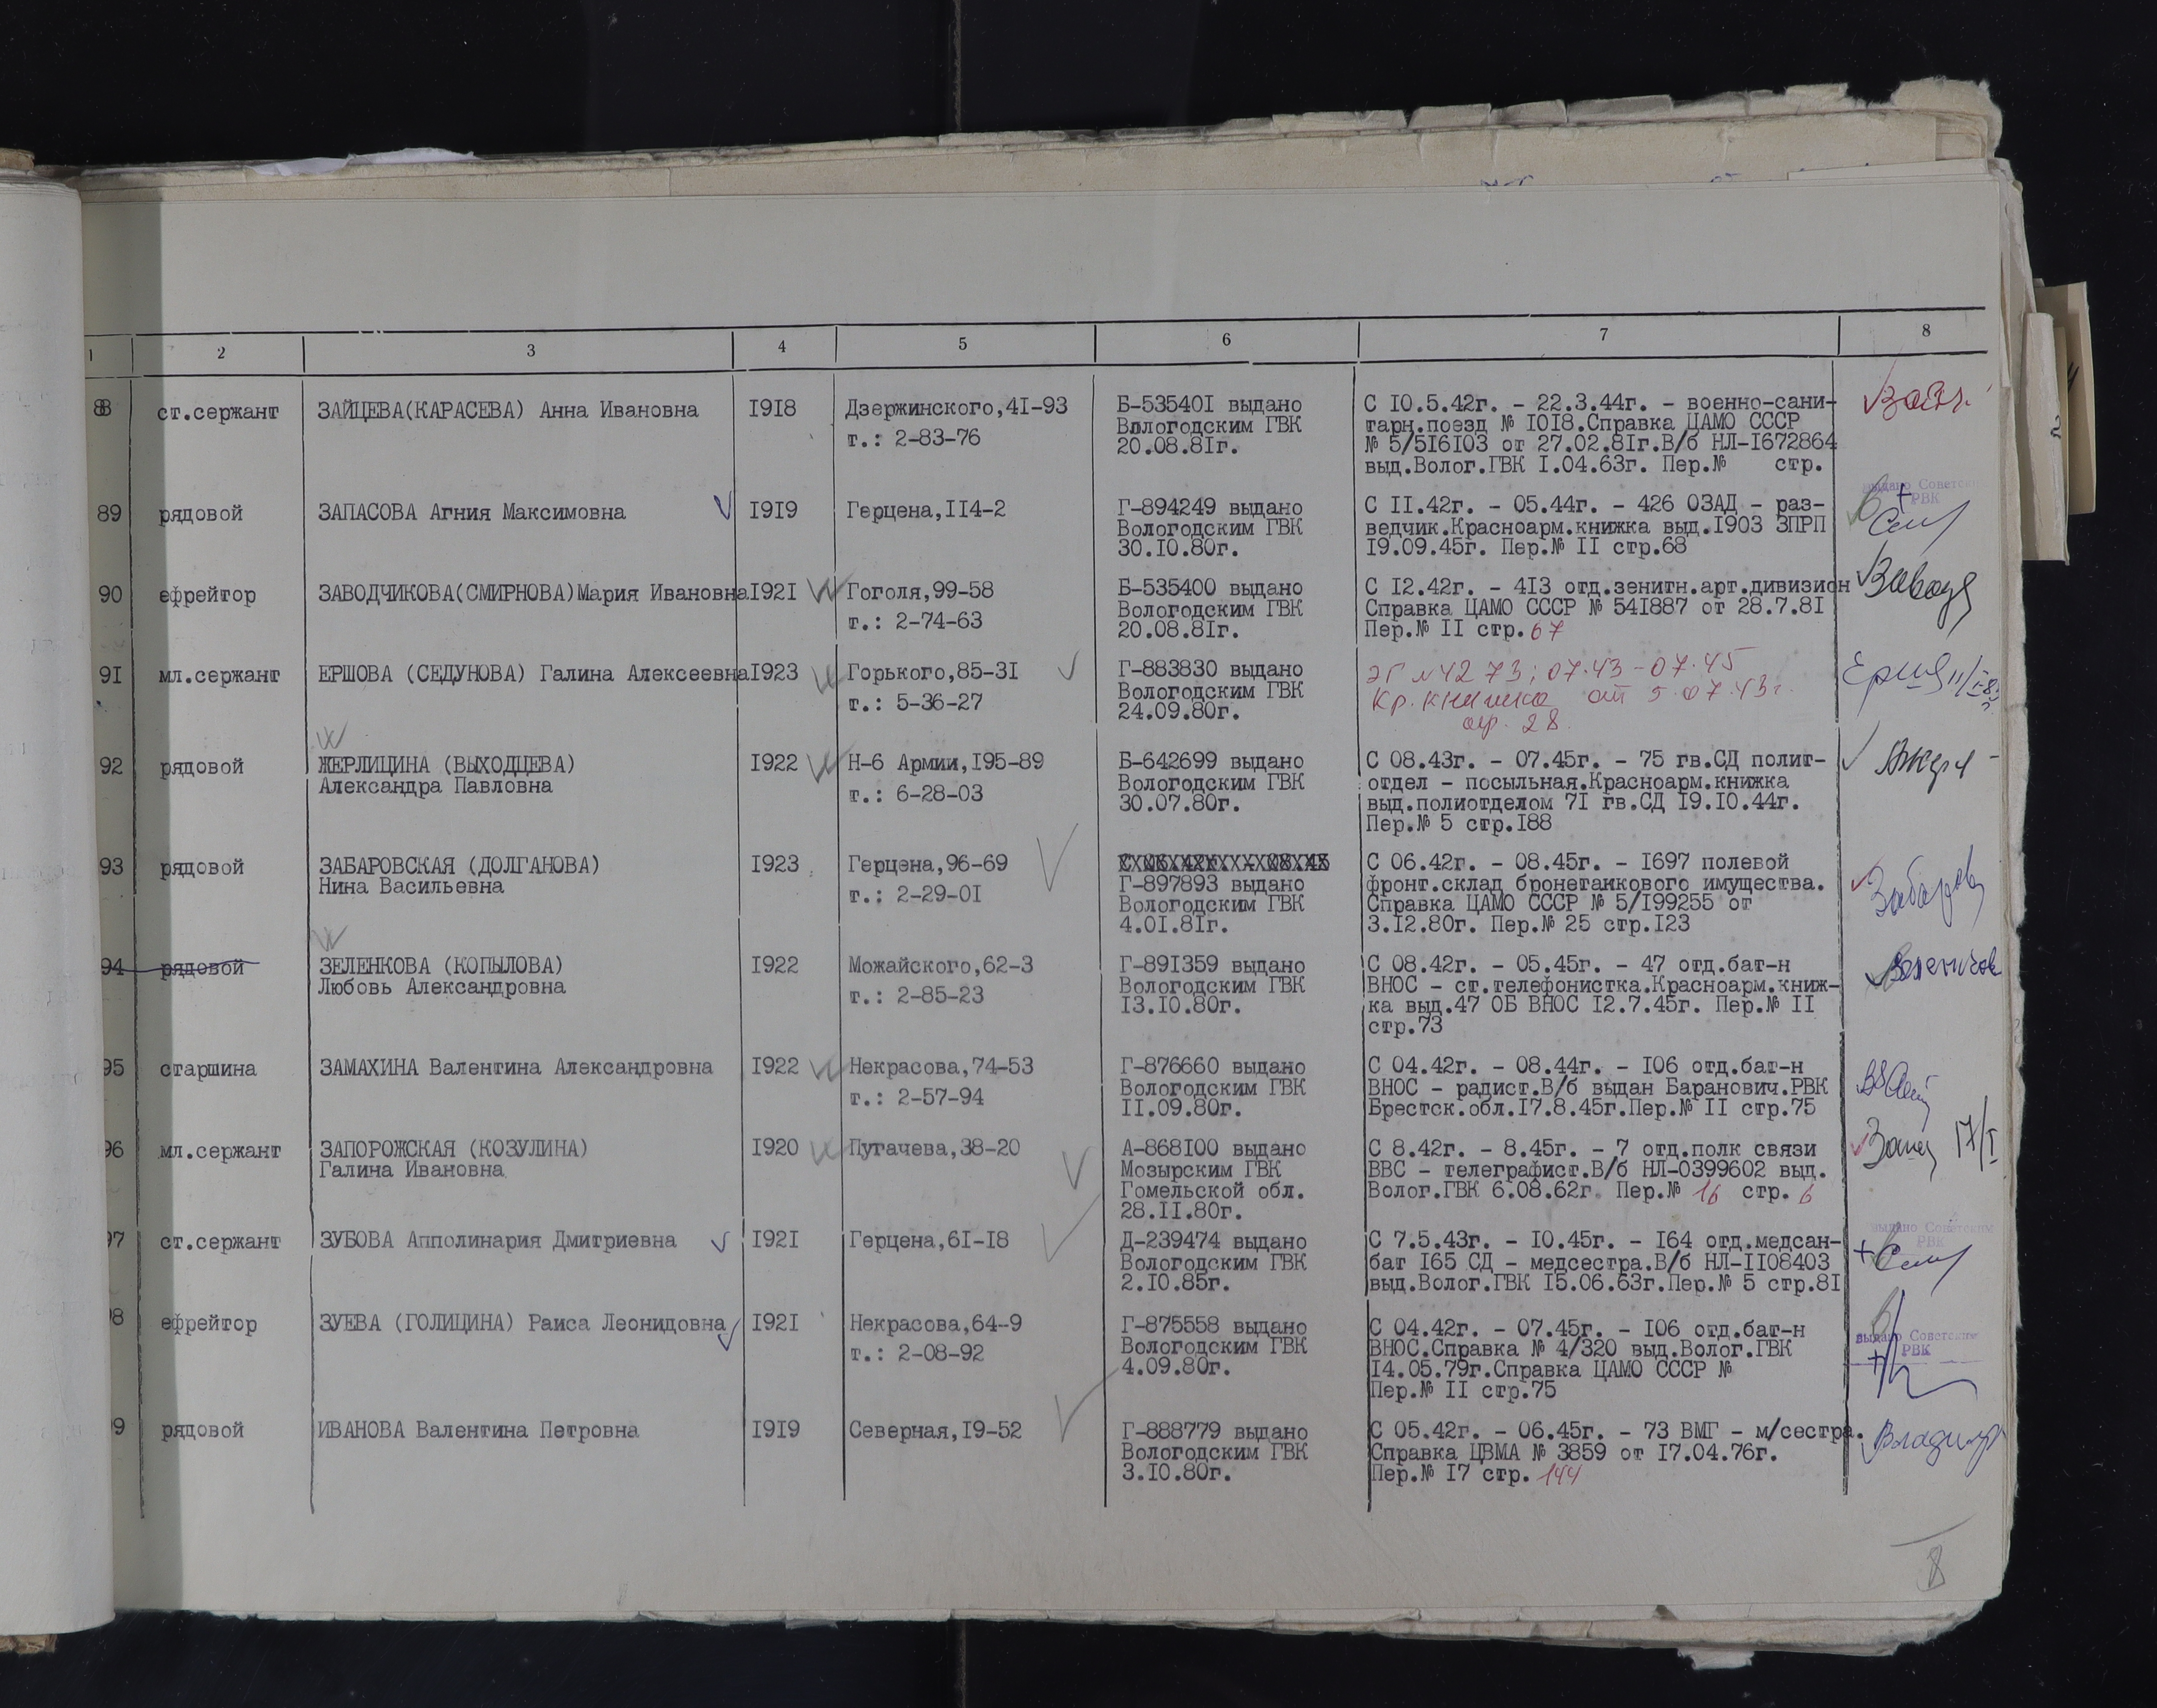 1 2 3 4 5 6 7 8
88 ст.сержант ЗАЙЦЕВА(КАРАСЕВА) Анна Ивановна I9I8 Дзержинского,4I-93 Б-53540I выдано С I0.5.42г. - 22.3.44г. - военно-сани-
т.: 2-83-76 Вологодским ГВК тарн.поезд № I0I8.Справка ЦАМО СССР
20.08.8Iг. № 5/5I6I03 от 27.02.8Iг.В/б НЛ-I672864
выд.Волог.ГВК I.04.63г. Пер.№ стр.
89 рядовой ЗАПАСОВА Агния Максимовна I9I9 Герцена,II4-2 Г-894249 выдано С II.42г. - 05.44г. - 426 ОЗАД - раз- выдано Советским
Вологодским ГВК ведчик.Красноарм.книжка выд.I903 ЗПРП РВК
30.I0.80г. I9.09.45г. Пер.№ II стр.68
90 ефрейтор ЗАВОДЧИКОВА(СМИРНОВА)Мария Ивановна I92I Гоголя,99-58 Б-535400 выдано С I2.42г. - 4I3 отд.зенитн.арт.дивизион
т.: 2-74-63 Вологодским ГВК Справка ЦАМО СССР № 54I887 от 28.7.8I
20.08.8Iг. Пер.№ II стр.67
9I мл.сержант ЕРШОВА (СЕДУНОВА) Галина Алексеевна I923 Горького,85-3I Г-883830 выдано ЭГ №4273; 07.43-07.45
т.: 5-36-27 Вологодским ГВК Кр.книжка от 5.07.43г.
24.09.80г. стр. 28
92 рядовой ЖЕРЛИЦИНА (ВЫХОДЦЕВА) I922 Н-6 Армии,I95-89 Б-642699 выдано С 08.43г. - 07.45г. - 75 гв.СД полит-
Александра Павловна т.: 6-28-03 Вологодским ГВК отдел - посыльная.Красноарм.книжка
30.07.80г. выд.полиотделом 7I гв.СД I9.I0.44г.
Пер.№ 5 стр.I88
93 рядовой ЗАБАРОВСКАЯ (ДОЛГАНОВА) I923 Герцена,96-69 С 06.42г. - 08.45г. - I697 полевой
Нина Васильевна т.: 2-29-0I Г-897893 выдано фронт.склад бронетанкового имущества.
Вологодским ГВК Справка ЦАМО СССР № 5/I99255 от
4.0I.8Iг. 3.I2.80г. Пер.№ 25 стр.I23
94 рядовой ЗЕЛЕНКОВА (КОПЫЛОВА) I922 Можайского,62-3 Г-89I359 выдано С 08.42г. - 05.45г. - 47 отд.бат-н
Любовь Александровна т.: 2-85-23 Вологодским ГВК ВНОС - ст.телефонистка.Красноарм.книж-
I3.I0.80г. ка выд.47 ОБ ВНОС I2.7.45г. Пер.№ II
стр.73
95 старшина ЗАМАХИНА Валентина Александровна I922 Некрасова,74-53 Г-876660 выдано С 04.42г. - 08.44г. - I06 отд.бат-н
т.: 2-57-94 Вологодским ГВК ВНОС - радист.В/б выдан Баранович.РВК
II.09.80г. Брестск.обл.I7.8.45г.Пер.№ II стр.75
96 мл.сержант ЗАПОРОЖСКАЯ (КОЗУЛИНА) I920 Пугачева,38-20 А-868I00 выдано С 8.42г. - 8.45г. - 7 отд.полк связи 17/I
Галина Ивановна Мозырским ГВК ВВС - телеграфист.В/б НЛ-0399602 выд.
Гомельской обл. Волог.ГВК 6.08.62г. Пер.№ 16 стр. 6
28.II.80г.
97 ст.сержант ЗУБОВА Апполинария Дмитриевна I92I Герцена,6I-I8 Д-239474 выдано С 7.5.43г. - I0.45г. - I64 отд.медсан- выдано Советским
Вологодским ГВК бат I65 СД - медсестра.В/б НЛ-II08403 РВК
2.I0.85г. выд.Волог.ГВК I5.06.63г.Пер.№ 5 стр.8I
98 ефрейтор ЗУЕВА (ГОЛИЦИНА) Раиса Леонидовна I92I Некрасова,64-9 Г-875558 выдано С 04.42г. - 07.45г. - I06 отд.бат-н выдано Советским
т.: 2-08-92 Вологодским ГВК ВНОС.Справка № 4/320 выд.Волог.ГВК РВК
4.09.80г. I4.05.79г.Справка ЦАМО СССР №
Пер.№ II стр.75
99 рядовой ИВАНОВА Валентина Петровна I9I9 Северная,I9-52 Г-888779 выдано С 05.42г. - 06.45г. - 73 ВМГ - м/сестра.
Вологодским ГВК Справка ЦВМА № 3859 от I7.04.76г.
3.I0.80г. Пер.№ I7 стр. 144
8